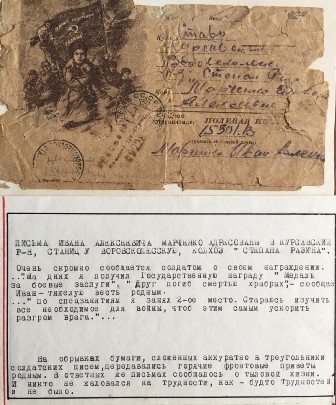 Ставр
Степан
Марченко
Алексеевне
ПОЛЕВАЯ
15301.В
Марченко Иван
ПИСЬМА ИВАНА АЛЕКСЕЕВИЧА МАРЧЕНКО АДРАСОВАНЫ В КУРСАВСКИЙ
Р-Н, СТАНИЦ У ВОРОВСКОЛЕССКУЮ, КОЛХОЗ "СТЕПАНА РАЗИНА".
Очень скромно сообщается солдатом о своем награждении.
..."На днях я получил Государственную награду " Медаль
за боевые заслуги", "Друг погиб смертью храбрых",- сообщает
Иван- тяжелую весть родным.
..." по спецзанятиям я занял 2-ое место. Стараюсь изучить
все необходимое для войны, чтоб этим самым ускорить
разгром врага."...
На обрывках бумаги, сложенных аккуратно в треугольники
солдатских писем, передавались горячие фронтовые приветы
родным. В ответных же письмах сообщалось о тыловой жизни.
И никто не жаловался на трудности, как - будто трудностей
и не было.